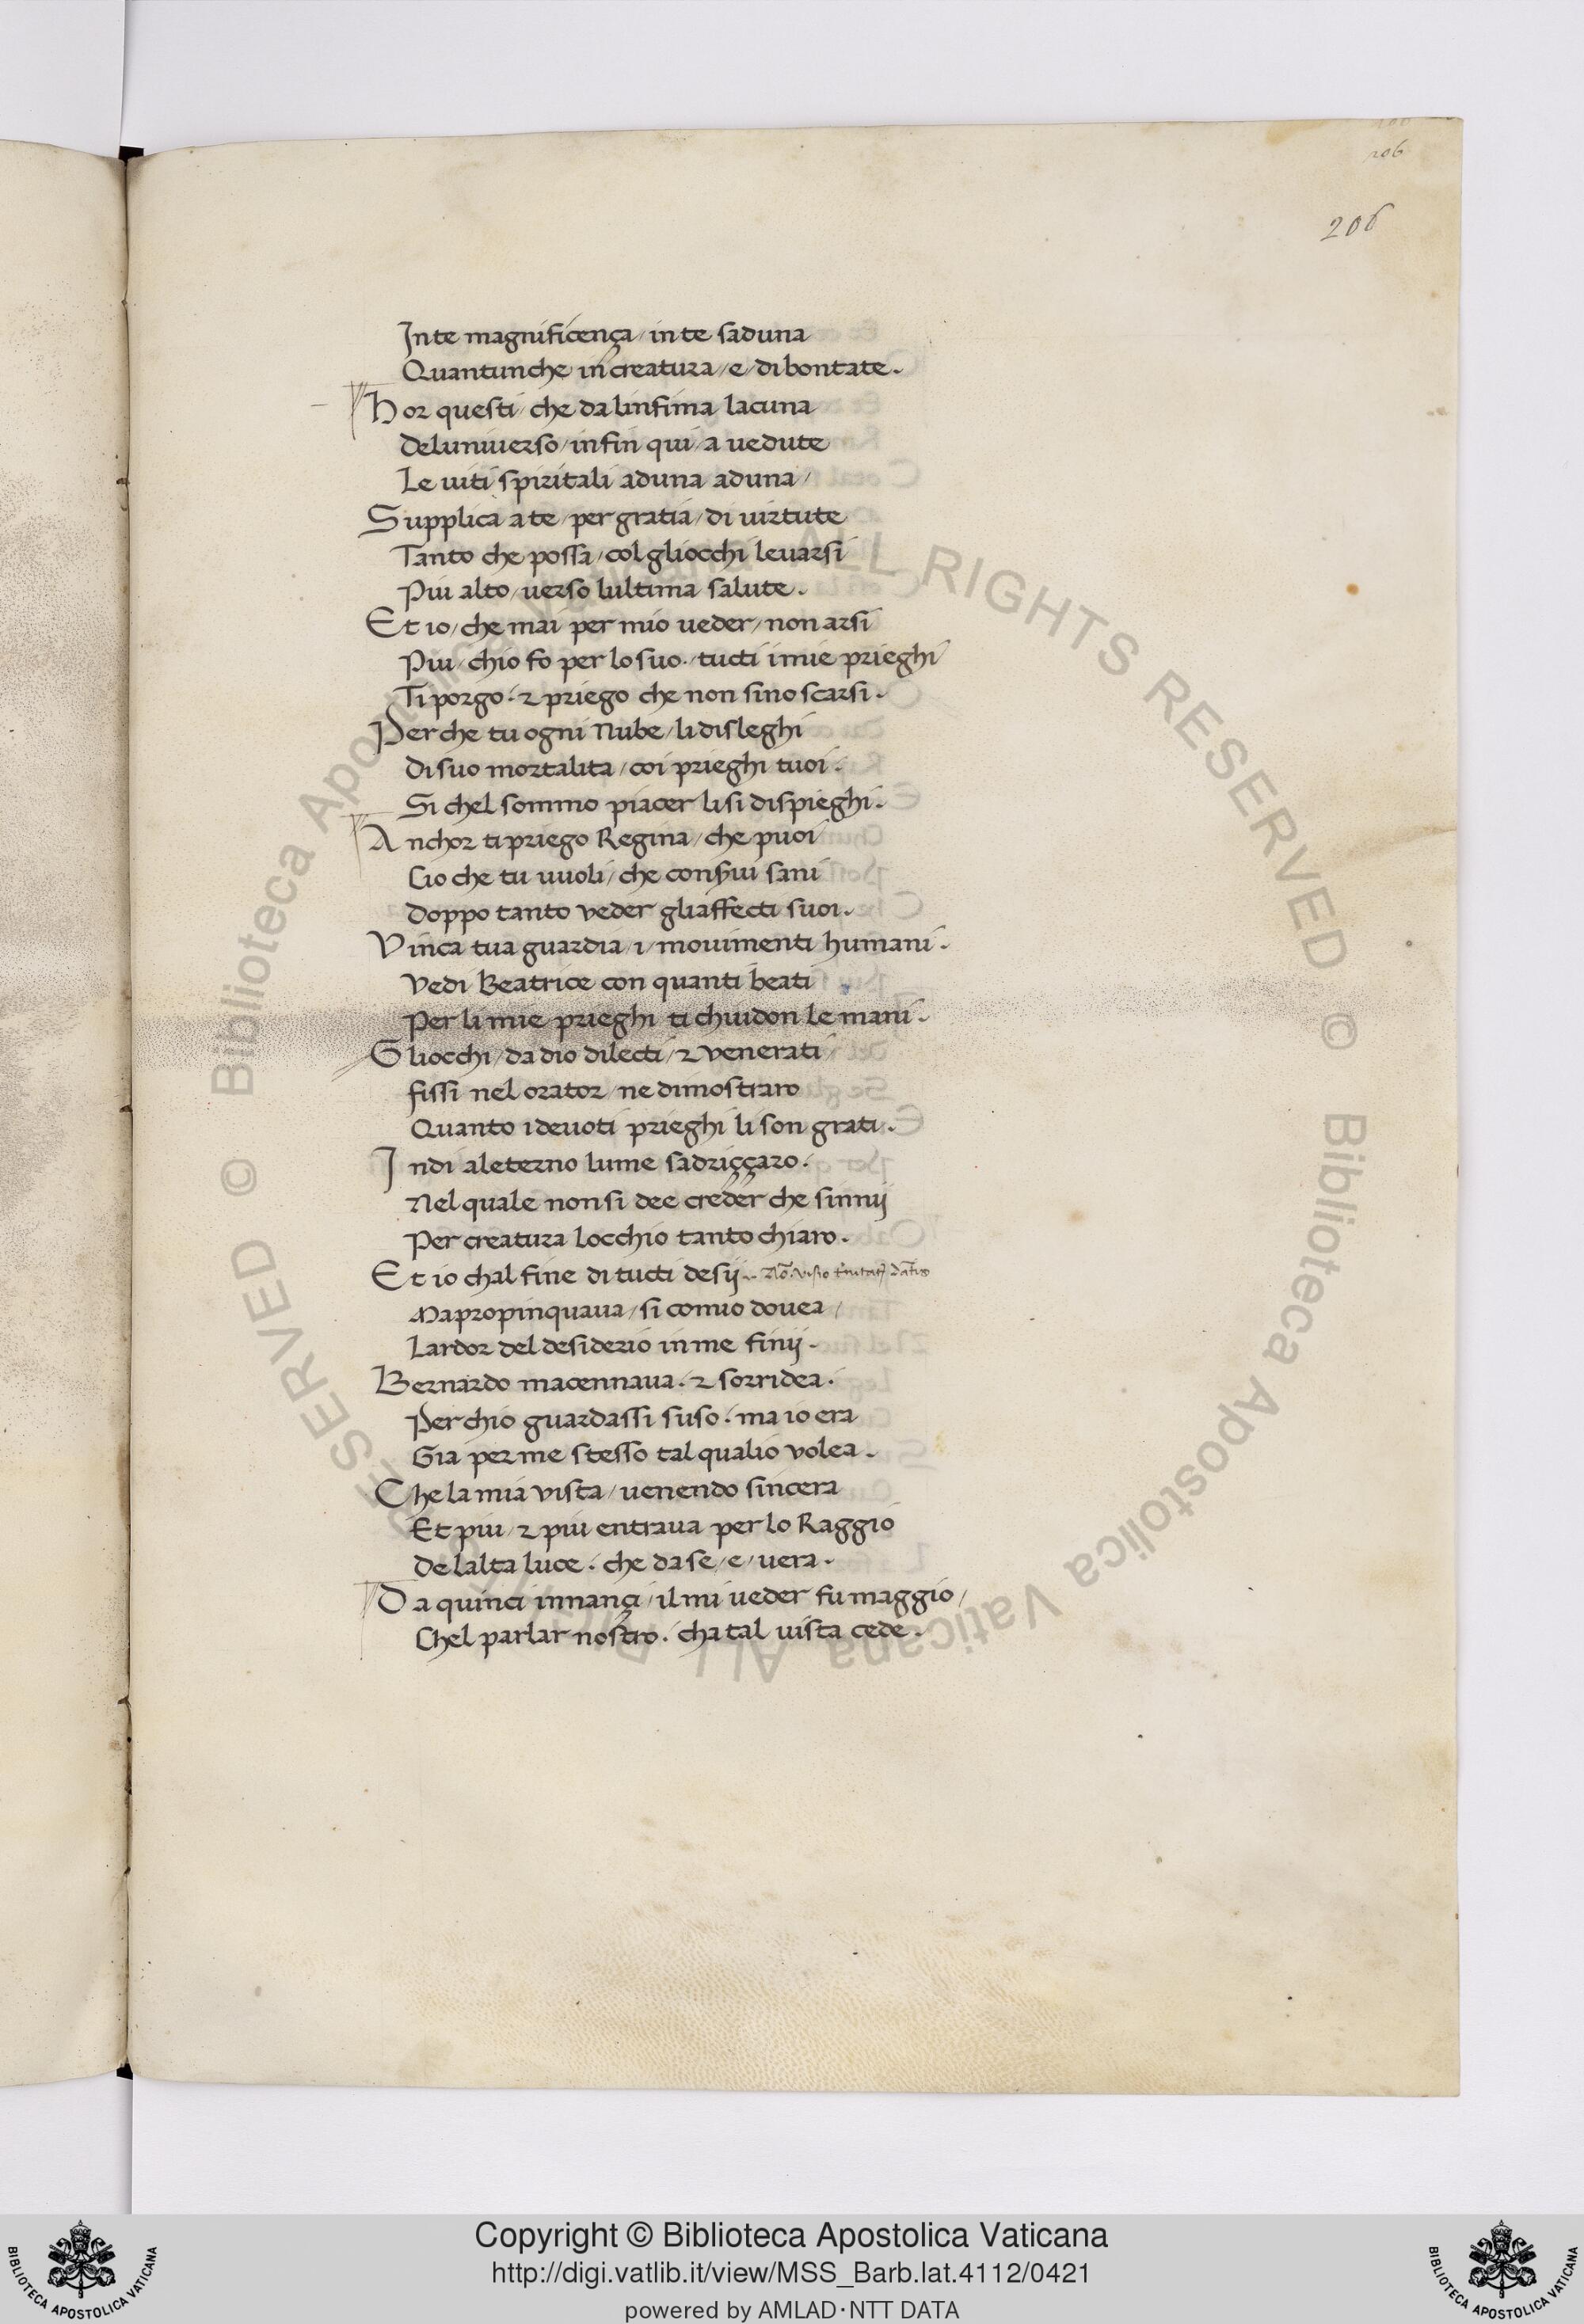 206
206
In te magnificença / in te saduna
Quantunche in creatura / e / di bontate.
Hor questi / che da linfima lacuna
del universo / infin qui / a vedute
Le viti spiritali aduna aduna /
Supplica a te / per gratia / di virtute
Tanto che possa / col gliocchi levarsi
Piu alto / verso lultima salute.
Et io / che mai per mio veder / non arsi
Piu / chio fo per lo suo. / tucti i mie prieghi
Ti porgo. & priego che non sino scarsi.
Perche tu ogni Nube / li disleghi
di suo mortalita / coi prieghi tuoi.
Si chel sommo piacer li si dispieghi.
Anchor ti priego Regina / che puoi
Cio che tu vuoli / che consvi sani
doppo tanto veder gliaffecti suoi.
Vinca tua guardia / i / movimenti humani.
Vedi Beatrice con quanti beati
Per li mie prieghi ti chiudon le mani.
Gliocchi / da dio dilecti / & venerati
fissi nel orator / ne dimostraro
Quanto i devoti prieghi li son grati.
Indi al eterno lume sadriççaro.
Nel quale non si dee creder che sinnij
Per creatura locchio tanto chiaro.
Et io chal fine di tucti desij.
Mapropinquava / si comio dovea /
Lardor del desiderio in me finij.
Bernardo macennava. & sorridea.
Perchio guardassi suso. ma io era
Gia per me stesso tal qualio volea.
Che la mia vista / venendo sincera
Et piu / & piu entrava per lo Raggio
de lalta luce. che da se / e / vera.
Da quinci innançi / il mi veder fu maggio /
Chel parlar nostro. cha tal vista cede.
© Biblioteca Apostolica Vaticana ALL RIGHTS RESERVED © Biblioteca Apostolica Vaticana ALL RIGHTS RESERVED
Copyright © Biblioteca Apostolica Vaticana
http://digi.vatlib.it/view/MSS_Barb.lat.4112/0421
powered by AMLAD・NTT DATA
BIBLIOTECA APOSTOLICA VATICANA
BIBLIOTECA APOSTOLICA VATICANA